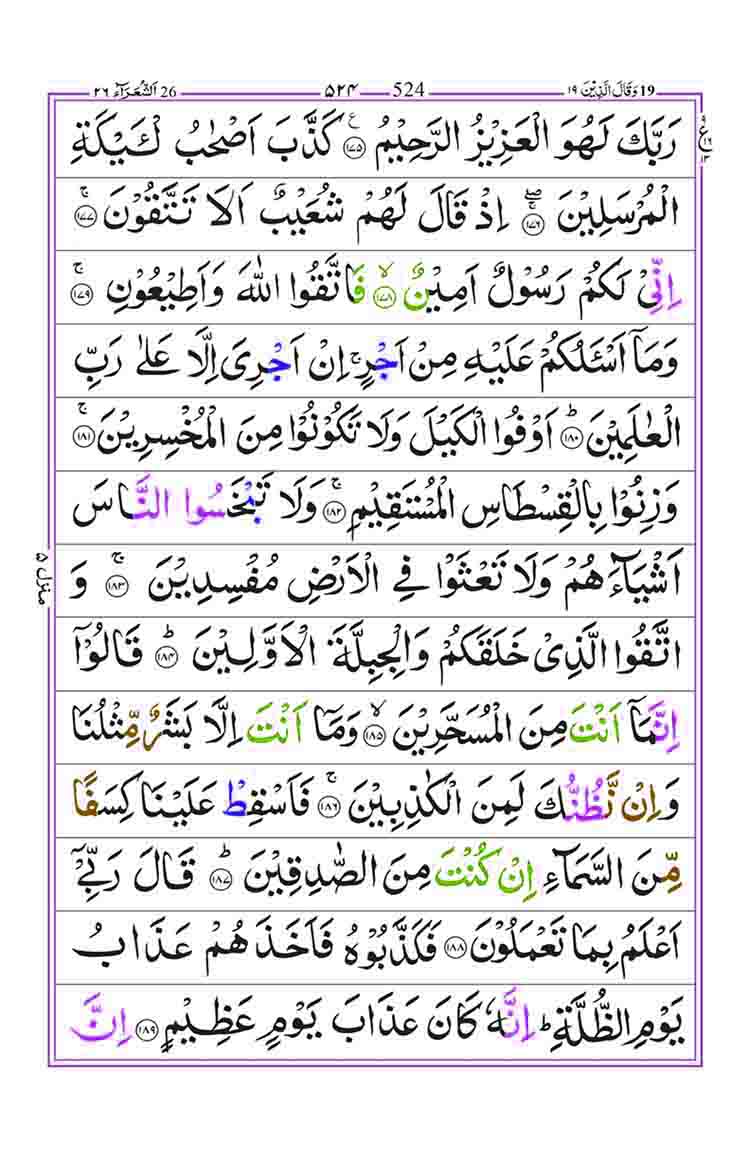 19 وَقَالَ الَّذِیْنَ ۱۹ 524 ۵۲۴ 26 اَلشُّعَرَآء ۲۶
رَبَّكَ لَهُوَ الْعَزِیْزُ الرَّحِیْمُ ﴿۱۷۵﴾ۧ كَذَّبَ اَصْحٰبُ لْـَٔیْكَةِ
الْمُرْسَلِیْنَ ﴿۱۷۶﴾ۖۚ اِذْ قَالَ لَهُمْ شُعَیْبٌ اَلَا تَتَّقُوْنَ ﴿۱۷۷﴾ۚ
اِنِّیْ لَكُمْ رَسُوْلٌ اَمِیْنٌ ﴿۱۷۸﴾ۙ فَاتَّقُوا اللّٰهَ وَاَطِیْعُوْنِ ﴿۱۷۹﴾ۚ
وَمَاۤ اَسْـَٔلُكُمْ عَلَیْهِ مِنْ اَجْرٍ ۚ اِنْ اَجْرِیَ اِلَّا عَلٰی رَبِّ
الْعٰلَمِیْنَ ﴿۱۸۰﴾ؕ اَوْفُوا الْكَیْلَ وَلَا تَكُوْنُوْا مِنَ الْمُخْسِرِیْنَ ﴿۱۸۱﴾ۚ
وَزِنُوْا بِالْقِسْطَاسِ الْمُسْتَقِیْمِ ﴿۱۸۲﴾ۚ وَلَا تَبْخَسُوا النَّاسَ
اَشْیَآءَهُمْ وَلَا تَعْثَوْا فِی الْاَرْضِ مُفْسِدِیْنَ ﴿۱۸۳﴾ۚ وَ
اتَّقُوا الَّذِیْ خَلَقَكُمْ وَالْجِبِلَّةَ الْاَوَّلِیْنَ ﴿۱۸۴﴾ؕ قَالُوْۤا
اِنَّمَاۤ اَنْتَ مِنَ الْمُسَحَّرِیْنَ ﴿۱۸۵﴾ۙ وَمَاۤ اَنْتَ اِلَّا بَشَرٌ مِّثْلُنَا
وَاِنْ نَّظُنُّكَ لَمِنَ الْكٰذِبِیْنَ ﴿۱۸۶﴾ۚ فَاَسْقِطْ عَلَیْنَا كِسَفًا
مِّنَ السَّمَآءِ اِنْ كُنْتَ مِنَ الصّٰدِقِیْنَ ﴿۱۸۷﴾ؕ قَالَ رَبِّیْۤ
اَعْلَمُ بِمَا تَعْمَلُوْنَ ﴿۱۸۸﴾ فَكَذَّبُوْهُ فَاَخَذَهُمْ عَذَابُ
یَوْمِ الظُّلَّةِ ؕ اِنَّهٗ كَانَ عَذَابَ یَوْمٍ عَظِیْمٍ ﴿۱۸۹﴾ اِنَّ
۹ ع ۱۶ ۱۳
منزل ۵